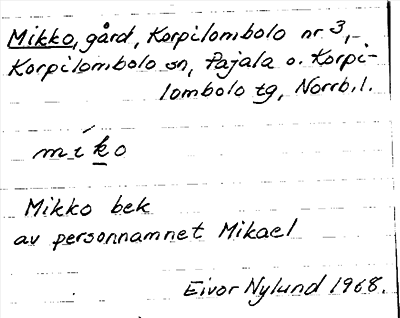 Mikko, gård, Korpilombolo nr 3,-
Korpilombolo sn, Pajala o. Korpi-
lombolo tg, Norrb. l.
mik̲o
Mikko bek
av personnamnet Mikael
Eivor Nylund 1968.